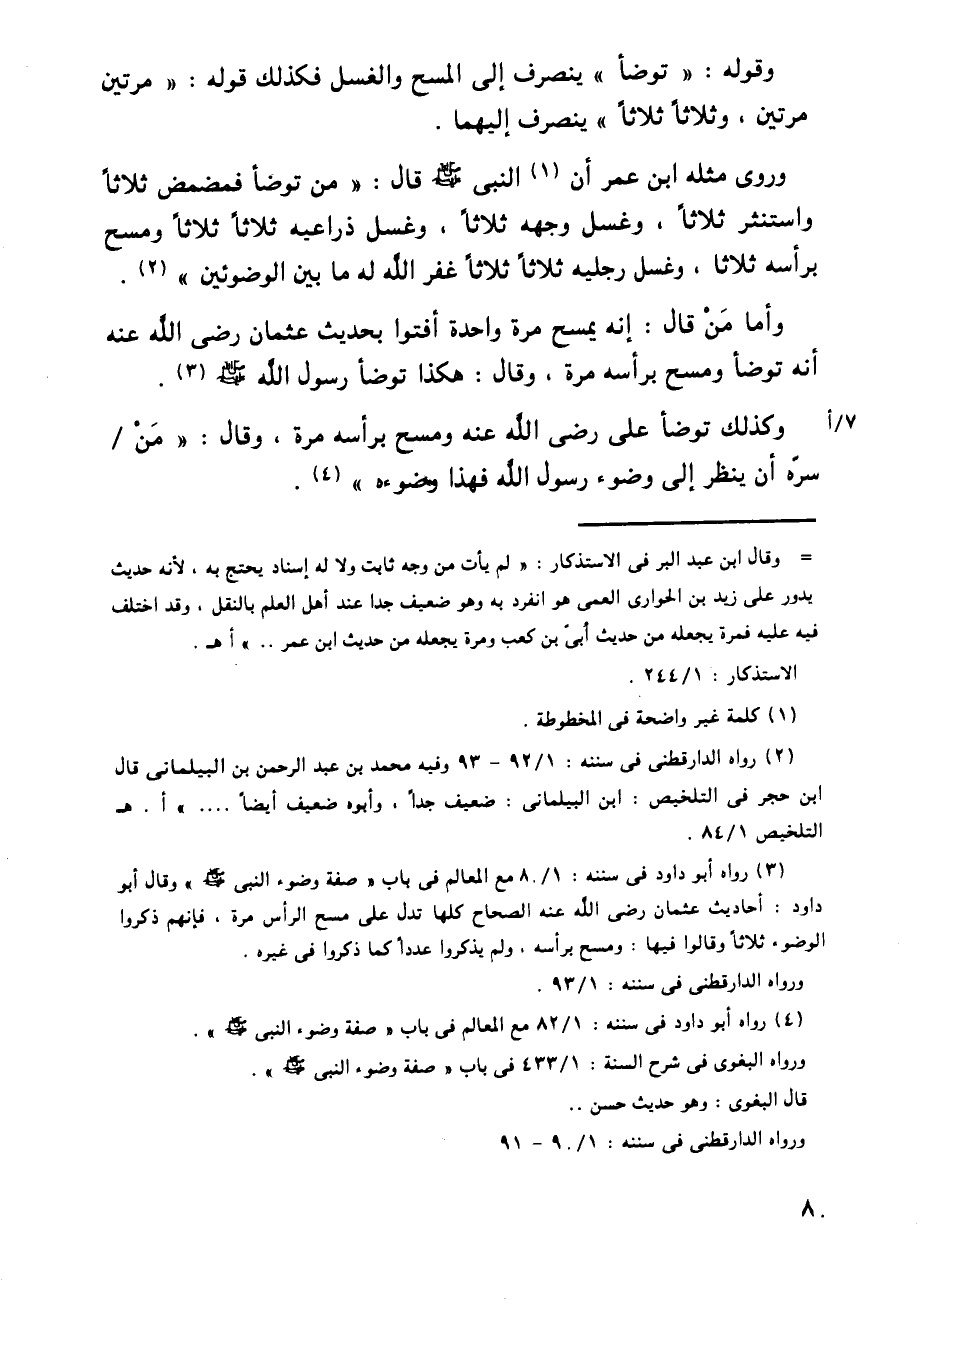 وقوله : « توضأ » ينصرف إلى المسح والغسل فكذلك قوله : « مرتين
مرتين ، وثلاثاً ثلاثاً » ينصرف إليهما .
وروى مثله ابن عمر أن (١) النبى ﷺ قال : « من توضأ فمضمض ثلاثاً
واستنثر ثلاثاً ، وغسل وجهه ثلاثاً ، وغسل ذراعيه ثلاثاً ثلاثاً ومسح
برأسه ثلاثا ، وغسل رجليه ثلاثاً ثلاثاً غفر الله له ما بين الوضوئين » (٢) .
وأما مَنْ قال : إنه يمسح مرة واحدة أفتوا بحديث عثمان رضى الله عنه
أنه توضأ ومسح برأسه مرة ، وقال : هكذا توضأ رسول الله ﷺ (٣) .
وكذلك توضأ على رضى الله عنه ومسح برأسه مرة ، وقال : « مَنْ / ٧/أ
سرّه أن ينظر إلى وضوء رسول الله فهذا وضوءه » (٤) .
= وقال ابن عبد البر فى الاستذكار : « لم يأت من وجه ثابت ولا له إسناد يحتج به ، لأنه حديث
يدور على زيد بن الحوارى العمى هو انفرد به وهو ضعيف جدا عند أهل العلم بالنقل ، وقد اختلف
فيه عليه فمرة يجعله من حديث أبىّ بن كعب ومرة يجعله من حديث ابن عمر .. » أ هـ .
الاستذكار : ٢٤٤/١ .
(١) كلمة غير واضحة فى المخطوطة .
(٢) رواه الدارقطنى فى سننه : ٩٢/١ – ٩٣ وفيه محمد بن عبد الرحمن بن البيلمانى قال
ابن حجر فى التلخيص : ابن البيلمانى : ضعيف جداً ، وأبوه ضعيف أيضاً .... » أ . هـ
التلخيص ٨٤/١ .
(٣) رواه أبو داود فى سننه : ٨٠/١ مع المعالم فى باب « صفة وضوء النبى ﷺ » وقال أبو
داود : أحاديث عثمان رضى الله عنه الصحاح كلها تدل على مسح الرأس مرة ، فإنهم ذكروا
الوضوء ثلاثاً وقالوا فيها : ومسح برأسه ، ولم يذكروا عدداً كما ذكروا فى غيره .
ورواه الدارقطنى فى سننه : ٩٣/١ .
(٤) رواه أبو داود فى سننه : ٨٢/١ مع المعالم فى باب « صفة وضوء النبى ﷺ » .
ورواه البغوى فى شرح السنة : ٤٣٣/١ فى باب « صفة وضوء النبى ﷺ » .
قال البغوى : وهو حديث حسن ..
ورواه الدارقطنى فى سننه : ٩٠/١ – ٩١
٨٠